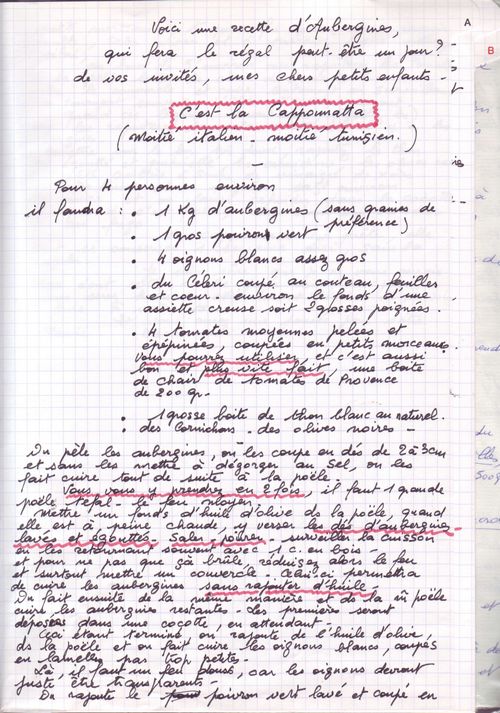 A
B
Voici une recette d'Aubergines,
qui fera le régal peut-être un jour?
de vos invités, mes chers petits enfants -
C'est la Cappounatta
(Moitié italien - moitié tunisien.)
Pour 4 personnes environ
il faudra : • 1 Kg d'aubergines (sans graines de
préférence)
• 1 gros poivron vert
• 4 oignons blancs assez gros
• du Céleri coupé au couteau, feuilles
et coeur - environ le fonds d'une
assiette creuse soit 2 grosses poignées.
• 4 tomates moyennes pelées et
épépinées, coupées en petits morceaux.
Vous pourrez utiliser, et c'est aussi
bon et plus vite fait, une boîte
de chair de tomates de Provence
de 200 gr -
• 1 grosse boîte de thon blanc au naturel.
• des Cornichons - des olives noires -
On pèle les aubergines, on les coupe en dés de 2 à 3cm
et sans les mettre à dégorger au sel, on les
fait cuire tout de suite à la poële -
Vous vous y prendrez en 2 fois, il faut 1 grande
poële Téfal - le feu moyen
Mettre un fonds d'huile d'olive ds la poële, quand
elle est à peine chaude, y verser les dés d'aubergine
lavés et égouttés - Saler, poivrer - surveiller la cuisson
en les retournant souvent avec 1 c. en bois -
et pour ne pas que çà brûle, réduisez alors le feu
et surtout mettre un couvercle. Celui-ci permettra
de cuire les aubergines sans rajouter d'huile -
On fait ensuite de la même manière et ds la m̂ poële
cuire les aubergines restantes - Les premières seront
déposées dans une cocotte, en attendant -
Ceci étant terminé on rajoute de l'huile d'olive,
ds la poële et on fait cuire les oignons blancs, coupés
en lamelles pas trop petites -
Là, il faut un feu doux, car les oignons devront
juste être transparents -
On rajoute le poivron vert lavé et coupé en